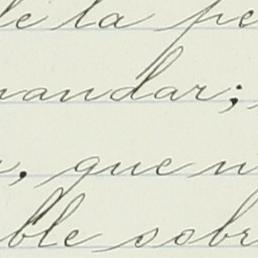 de la pe
mandar;
, que n
ble sobr